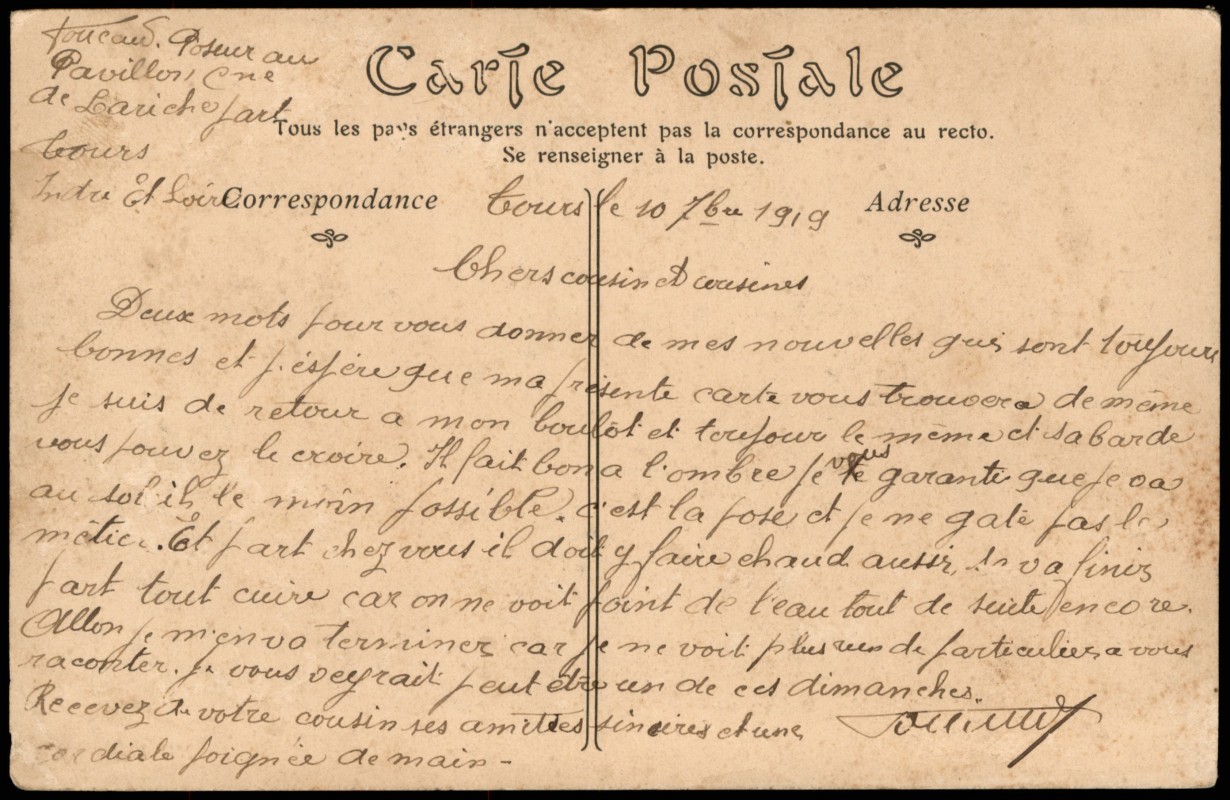 Carte Postale
Tous les pays étrangers n'acceptent pas la correspondance au recto.
Se renseigner à la poste.
Foucaud. Poseur au
Pavillon, Cne
de Lariche part
Tours
Indre Et Loire
Correspondance
Adresse
Tours le 10 7bre 1919
Chers cousin et cousines
Deux mots pour vous donner de mes nouvelles qui sont toujours
bonnes et j'éspére que ma présente carte vous trouvera de méme
Je suis de retour a mon boulôt et toujour le même et sabarde
vous pouvez le croire. Il fait bon a l'ombre je vous garanti que je va
au soleil le moin possible. c'est la pose et je ne gate pas le
métier. Et part chez vous il doit y faire chaud aussi, sa va finir
part tout cuire car on ne voit point de l'eau tout de suite encore.
Allon je m'en va terminer car je ne voit plus rien de particulier a vous
raconter. je vous veyrait peut étre un de ces dimanches.
Recevez de votre cousin ses amities sincires et une
cordiale poignée de main -
Foucaud